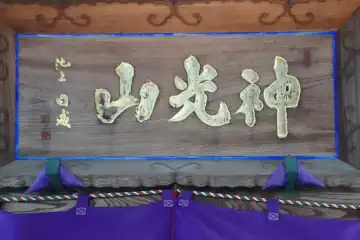 神光山
池上 日威